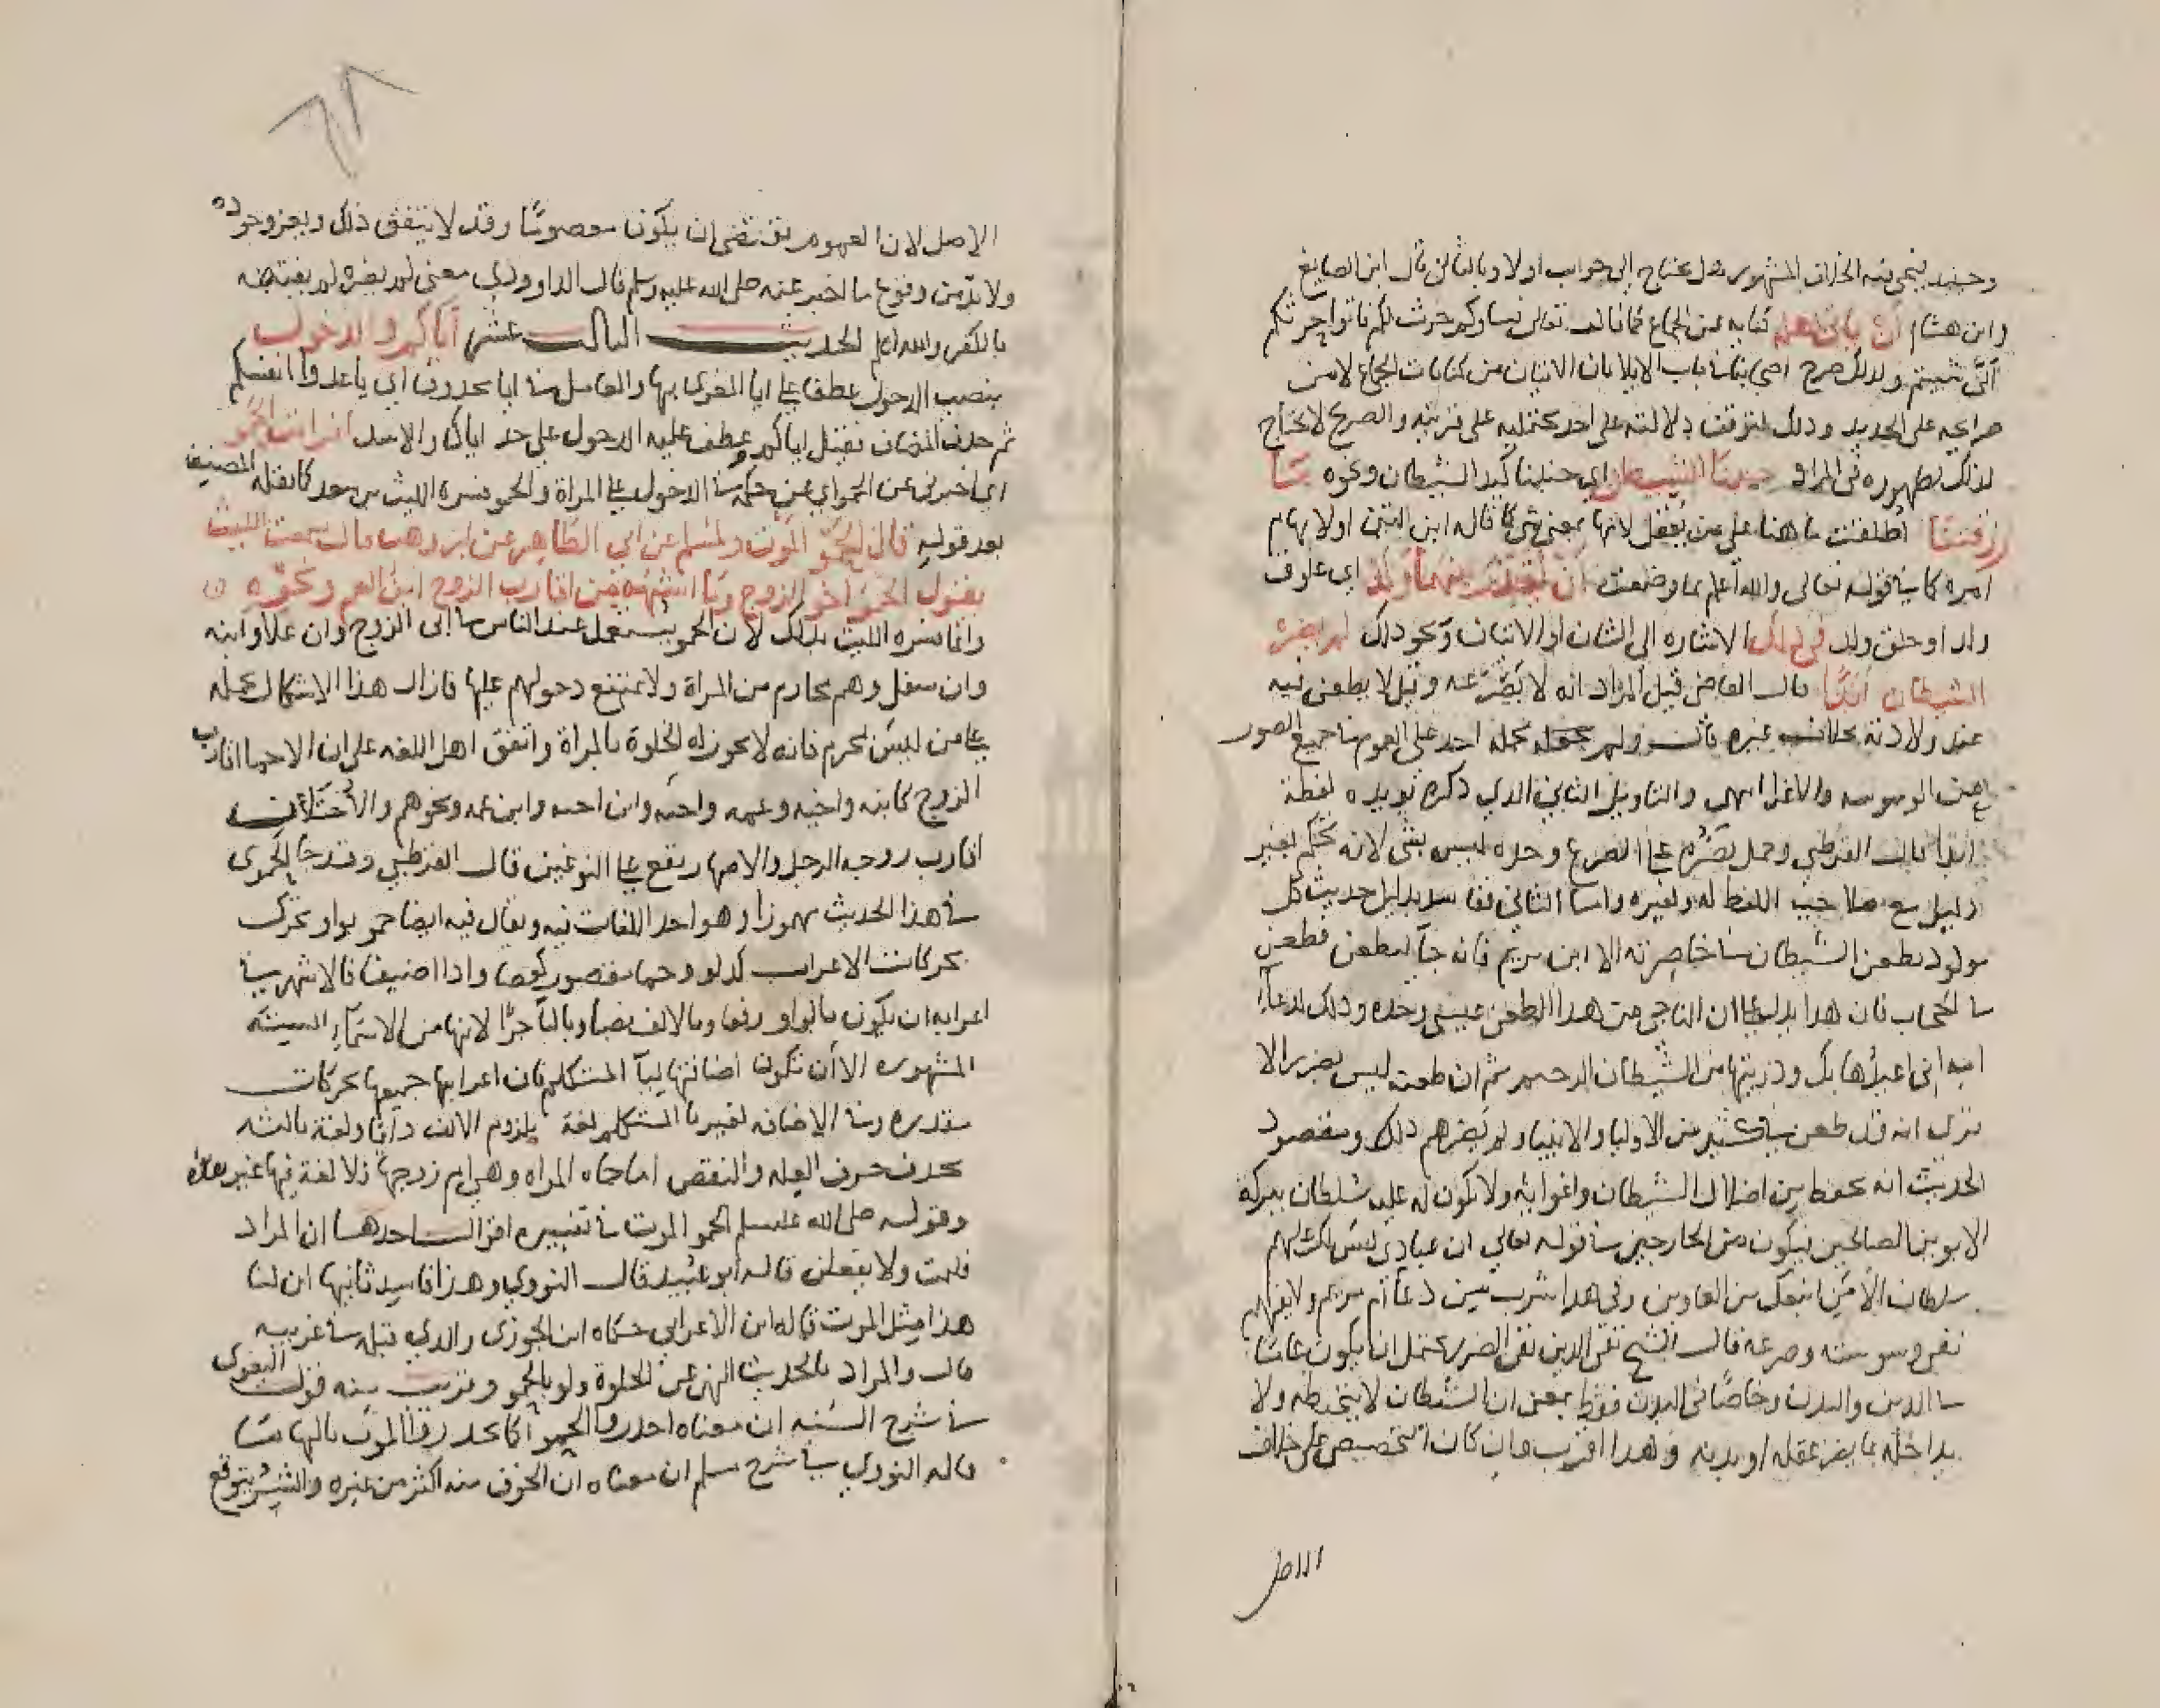 وحينيد ينجي فيه الخلاف المشهور هل يحتاج الى جواب اولا وبالثاني قال ابن الصايغ
وابن هشام ان ياتي اهله كنايه عن الجماع كما قال تعالى نساوكم حرث لكم فاتوا حرثكم
انى شيتم ولذلك صرح اصحابنا في باب الايلا بان الاتيان من كنايات الجماع لا من
صرايحه على الجديد وذلك لتوقف دلالته على احد محتمليه على قرينه والصريح لا يحتاج
لذلك لظهوره في المراد جنبنا الشيطان اي جنبنا كيد الشيطان ونحوه ما
رزقتنا اطلقت ما هنا على من يعقل لانها بمعنى شي كما قاله ابن المنير اولا بهام
امره كما في قوله تعالى والله اعلم بما وضعت ان يقدر بينهما ولد اي علوق
ولد او خلق ولد في ذلك الاشاره الى الشان او الاتيان ونحو ذلك لم يضره
الشيطان ابدا قال القاضي قيل المراد انه لا يصرعه وقيل لا يطعن فيه
عند ولادته بخلاف غيره قال ولم يحمله احد على العموم في جميع الصور
يعني الوسوسه والاغرا انتهى والتاويل الثاني الذي ذكره تويده لفظة
ابدا قال القرطبي وحمل يضره على الصرع وحده ليس بشي لانه تحكم بغير
دليل مع صلاحية اللفظ له ولغيره واما الثاني ففاسد بدليل حديث كل
مولود يطعن الشيطان في خاصرته الا ابن مريم فانه جا ليطعن فطعن
في الحجاب فان هذا يدل على ان الناجي من هذا الطعن عيسى وحده وذلك لدعا
امه اني اعيذها بك وذريتها من الشيطان الرجيم ثم ان طعنه ليس بضرر الا
ترى انه قد طعن في كثير من الاوليا والانبيا ولم يضرهم ذلك ومقصود
الحديث انه يحفظ من اضلال الشيطان واغوايه ولا يكون له عليه سلطان ببركة
الابوين الصالحين فيكون من الخارجين في قوله تعالى ان عبادي ليس لك عليهم
سلطان الا من اتبعك من الغاوين وفي هذا شرب من دعا ام مريم ولا يفهم
نفي وسوسته وصرعه قال الشيخ تقي الدين نفي الضرر يحتمل ان يكون عاما
في الدين والبدن وخاصا في البدن فقط بمعنى ان الشيطان لا يتخبطه ولا
يداخله بما يضر عقله او بدنه وهذا اقرب وان كان التخصيص على خلاف
الاصل
٦٨
الاصل لان العموم يقتضي ان يكون معصوما وقد لا يتفق ذلك ويعز وجوده
ولا بد من وقوع ما اخبر عنه صلى الله عليه وسلم قال الداوودي معنى لم يضره لم يفتنه
بالكفر والله اعلم الحديث الثالث عشر اياكم والدخول
بنصب الدخول عطفا على ايا المغرى بها والعامل في ايا محذوف اي باعدوا انفسكم
ثم حذف المضاف فقيل اياكم وعطف عليه الدخول على حد اياك والاسد افرايت الحمو
اي اخبرني عن الحمو اي عن حكمه في الدخول على المراة والحمو فسره الليث بن سعد كما نقله المصنف
بعد قوله قال الحمو الموت ولمسلم عن ابي الطاهر عن ابن وهب قال سمعت الليث
يقول الحمو اخو الزوج وما اشبهه من اقارب الزوج ابن العم ونحوه
وانما فسره الليث بذلك لان الحمو يستعمل عند الناس في ابي الزوج وان علا وابنه
وان سفل وهم محارم من المراة ولا يمتنع دخولهم عليها فازال هذا الاشكال بحمله
على من ليس بمحرم فانه لا يجوز له الخلوة بالمراة واتفق اهل اللغه على ان الاحما اقارب
الزوج كابنه واخيه وعمه واخته وابن اخيه وابن عمه ونحوهم والاختان
اقارب زوجه الرجل والاصهار يقع على النوعين قال القرطبي وقد جا الحموى
في هذا الحديث مهموزا وهو احد اللغات فيه ويقال فيه ايضا حمو بواو تحرك
بحركات الاعراب كدلو وحما مقصور كعصا واذا اضيف فالاشهر في
اعرابه ان يكون بالواو رفعا وبالالف نصبا وباليا جرا لانها من الاسماء الستة
المشهوره الا ان تكون اضافتها ليا المتكلم فان اعرابها جميعها بحركات
مقدره وفي الاضافه لغير يا المتكلم لغة بلزوم الالف دايما ولغة ثالثه
بحذف حرف العله والنقص اما حماه المراه وهي ام زوجها فلا لغة فيها غير هذه
وقوله صلى الله عليه وسلم الحمو الموت في تفسيره اقوال احدها ان المراد
فليمت ولا يفعلن قاله ابو عبيد قال النووي وهذا فاسد ثانيها ان لقا
هذا مثل الموت قاله ابن الاعرابي حكاه ابن الجوزي والذي قبله في غريبه
قال والمراد بالحديث النهي عن الخلوة ولو بالحمو وقريب منه قول البغوى
في شرح السنه ان معناه احذروا الحمو كما يحذر الموت ثالثها ما
قاله النووي في شرح مسلم ان معناه ان الخوف منه اكثر من غيره والشر يتوقع